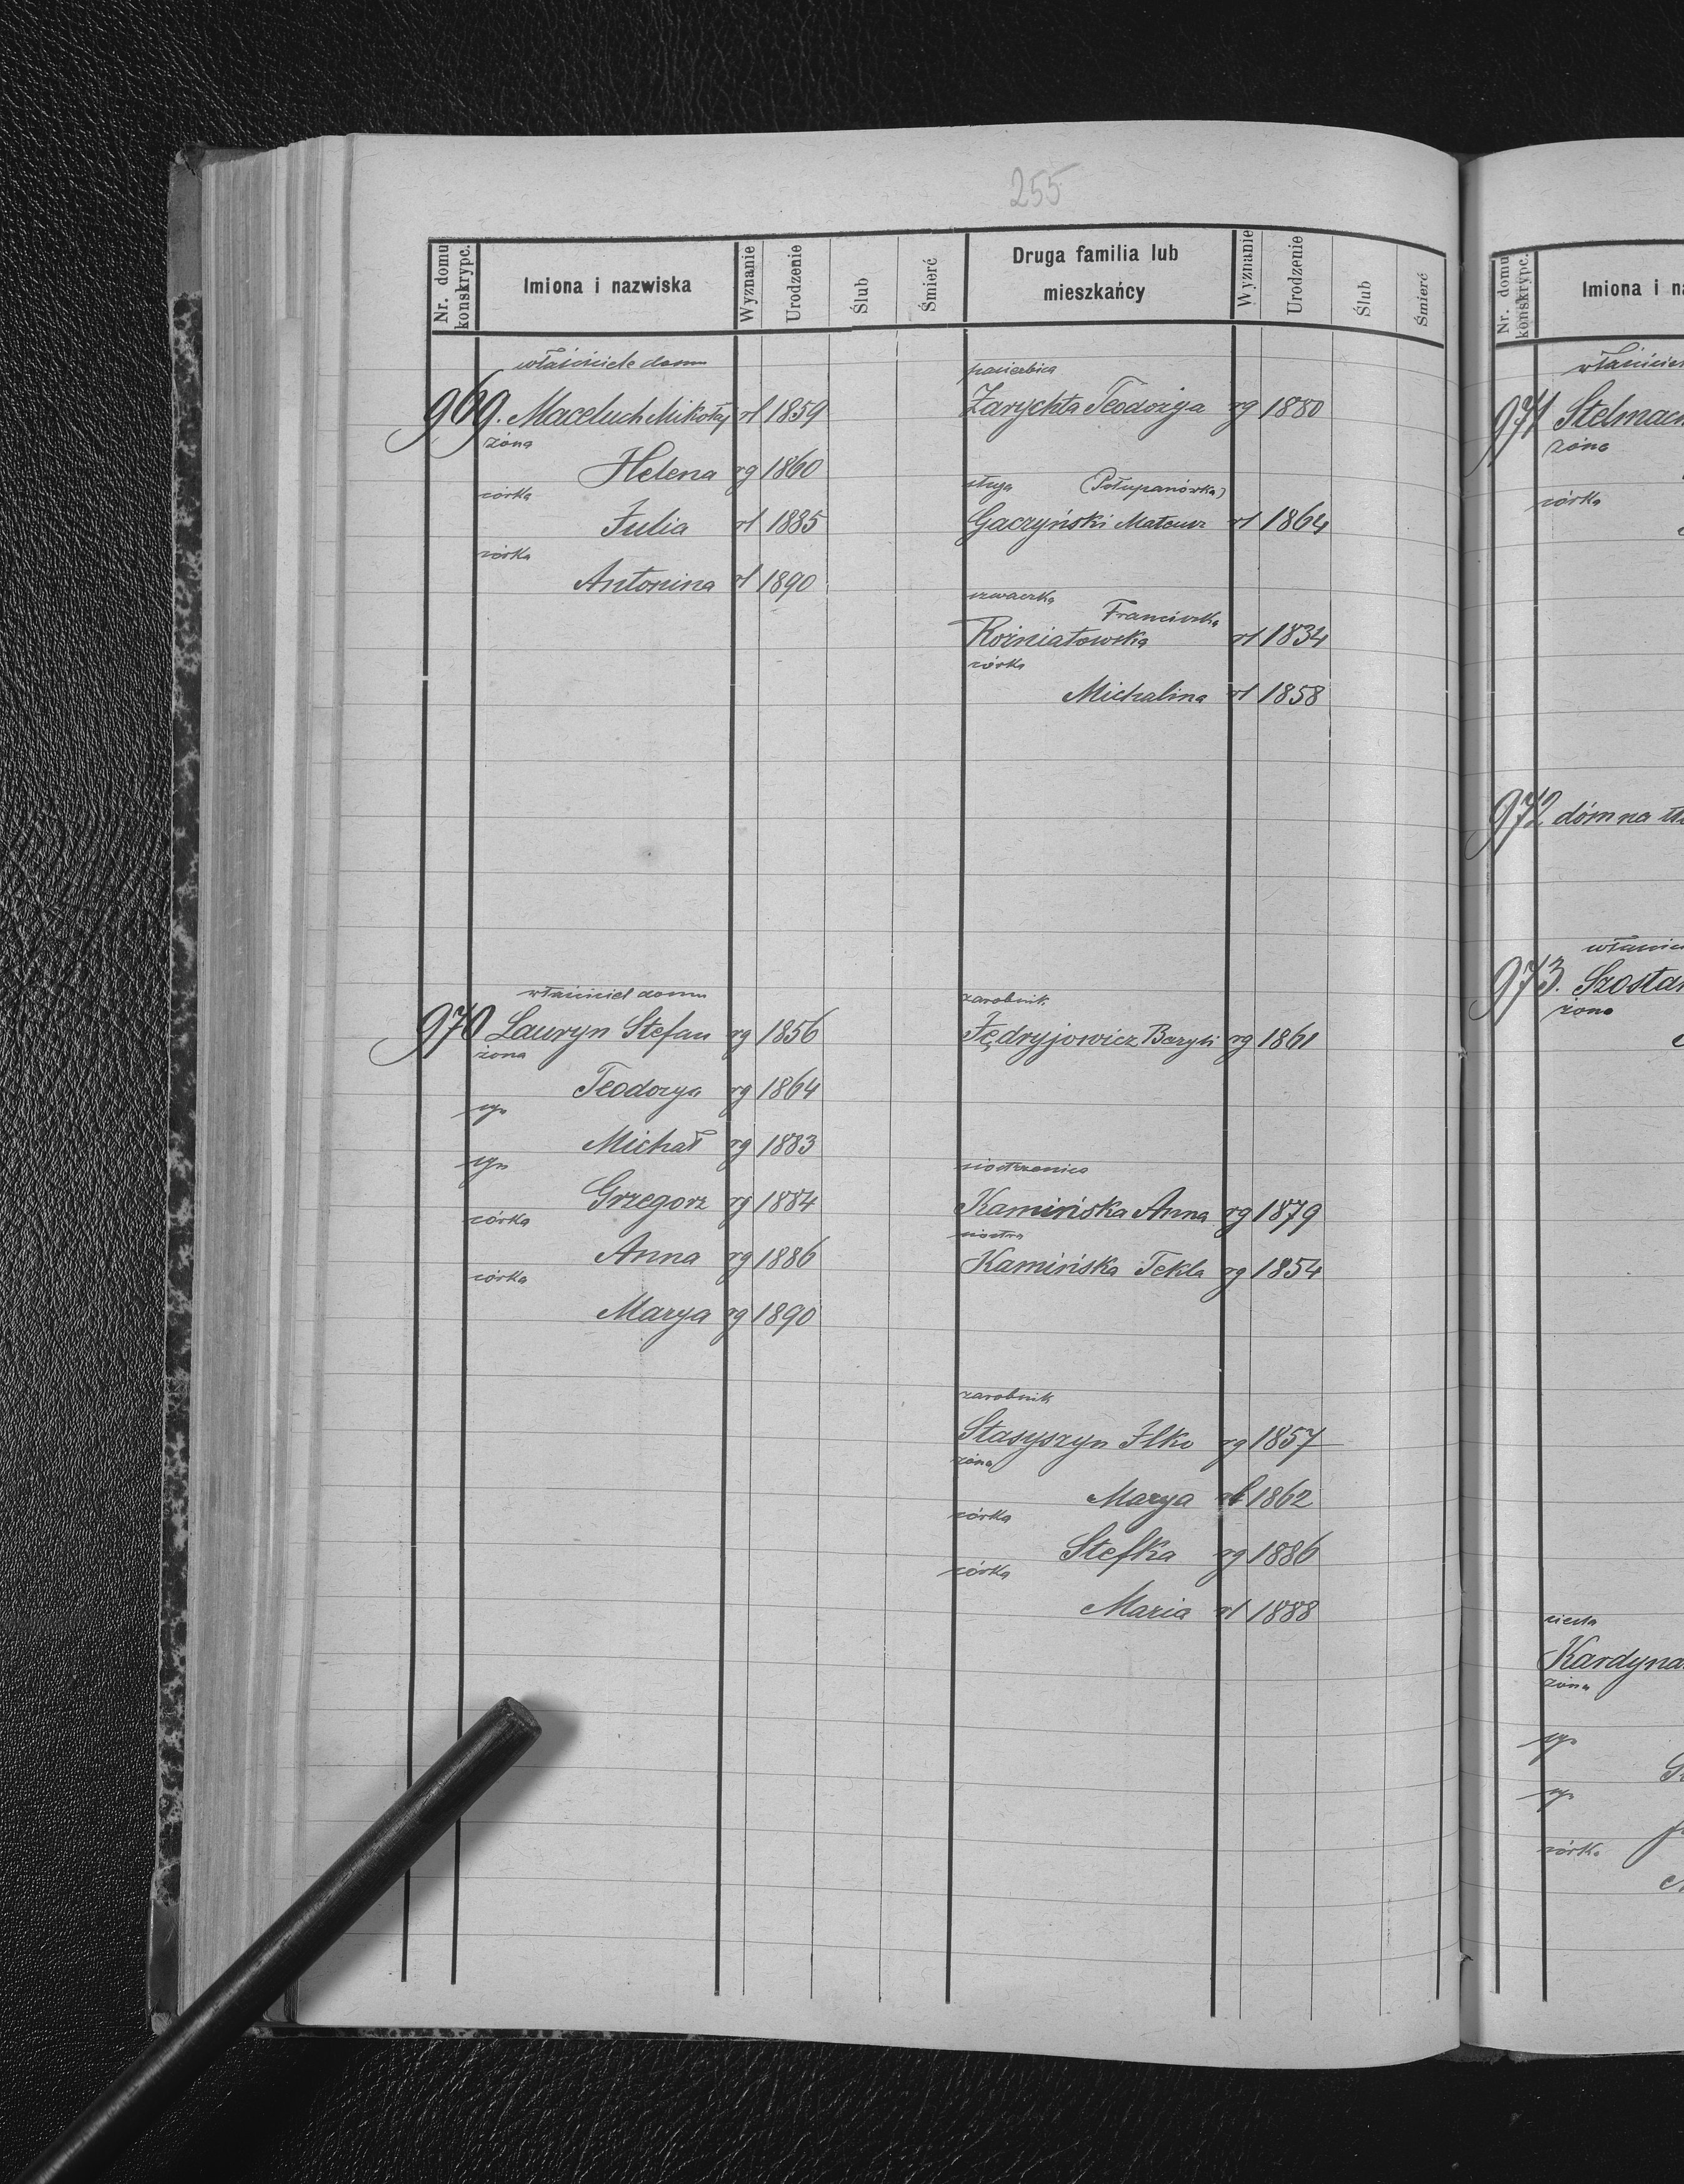 255
Nr. domu konskrypc.
Imiona i nazwiska
Wyznanie
Urodzenie
Ślub
Śmierć
Druga familia lub
mieszkańcy
Wyznanie
Urodzenie
Ślub
Śmierć
właściciele domu
969. Maceluch Mikołaj rł 1859
żona
Helena rg 1860
córka
Julia rł 1885
córka
Antonina rł 1890
pasierbica
Zarychta Teodozya rg 1880
sługa (Połupanówka)
Gaczyński Mateusz rł 1864
szwaczka
Franciszka
Rożniatowska rł 1834
córka
Michalina rł 1858
właściciel domu
970 Lauryn Stefan rg 1856
żona
Teodozya rg 1864
syn
Michał rg 1883
syn
Grzegorz rg 1884
córka
Anna rg 1886
córka
Marya rg 1890
zarobnik
Fędryjowicz Bazyli rg 1861
siostrzenica
Kamińska Anna rg 1879
siostra
Kamińska Tekla rg 1854
zarobnik
Stasyszyn Ilko rg 1857
żona
Marya rł 1862
córka
Stefka rg 1886
córka
Maria rł 1888
Nr. domu konskrypc.
Imiona i na
właściciel
971 Stelmach
żona
córka
972 dóm na
973. Szosta
żona
Kardyna
żona
syn
syn
córka